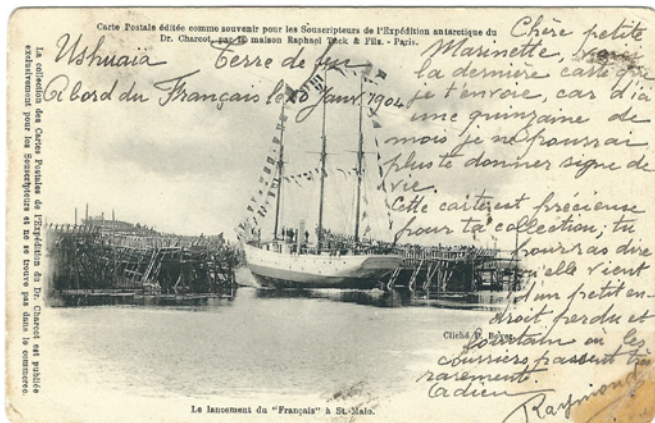 Carte Postale éditée comme souvenir pour les Souscripteurs de l'Expédition antarctique du
Dr. Charcot, par la maison Raphael Tuck & Fils. - Paris.
La collection des Cartes Postales de l'Expédition du Dr. Charcot est publiée
exclusivement pour les Souscripteurs et ne se trouve pas dans le commerce.
Ushuaïa Terre de feu
A bord du Français le 20 Janv. 1904
Chère petite
Marinette, voici
la dernière carte que
je t'envoie, car d'ià
une quinzaine de
mois je ne pourrai
plus te donner signe de
vie.
Cette carte est précieuse
pour ta collection; tu
pourras dire
qu'elle vient
d'un petit en-
droit perdu et
lointain où les
courriers passent très
rarement.
Adieu
Raymond
Cliché P. Boyer
Le lancement du "Français" à St.-Malo.